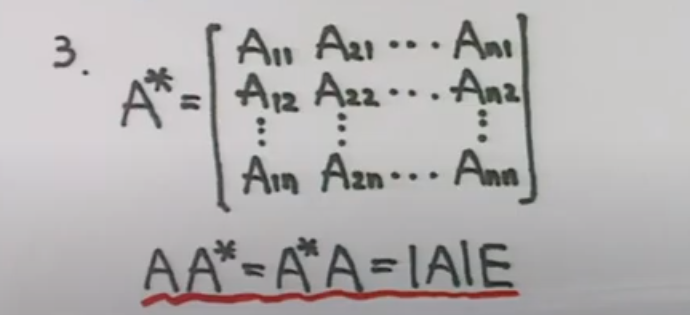 3.
A* = [ A₁₁ A₂₁ ⋯ Aₙ₁
A₁₂ A₂₂ ⋯ Aₙ₂
⋮ ⋮ ⋮
A₁ₙ A₂ₙ ⋯ Aₙₙ ]
AA* = A*A = |A|E